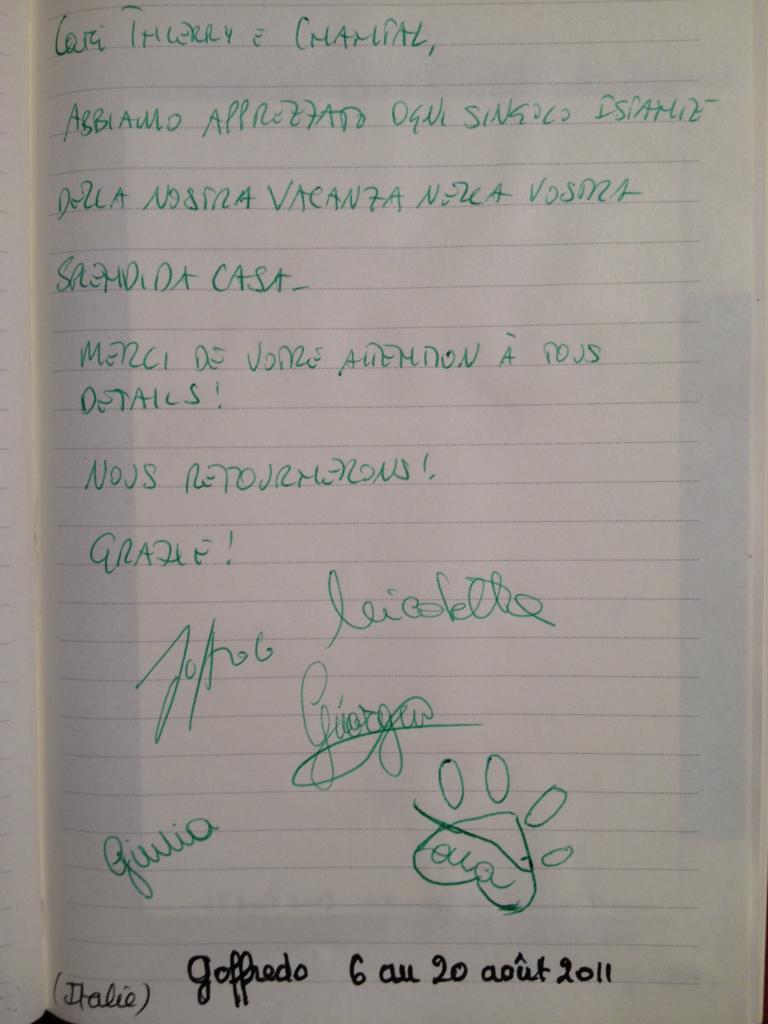 Cari THIERRY E CHANTAL,
ABBIAMO APPREZZATO OGNI SINGOLO ISTANTE
DELLA NOSTRA VACANZA NELLA VOSTRA
SPLENDIDA CASA_
MERCI DE VOTRE ATTENTION À TOUS
DETAILS!
NOUS RETOURNERONS!
GRAZIE!
Nicoletta
Goffredo
Giorgia
Giulia
(Italie) Goffredo 6 au 20 août 2011